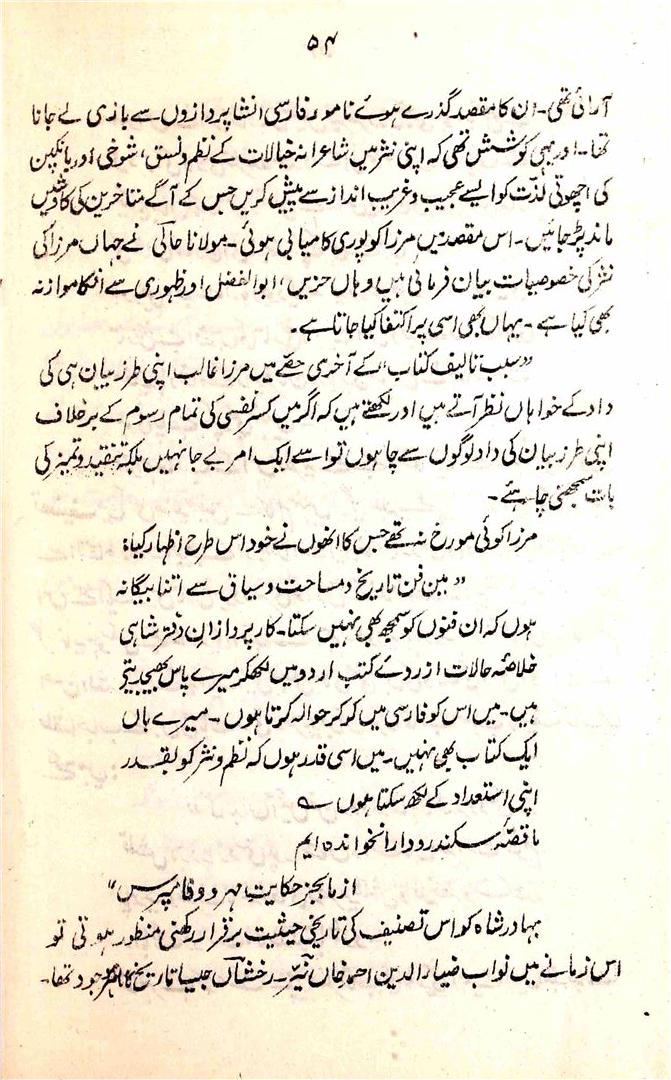 ۵۴
آرائی تھی۔ ان کا مقصد گذرے ہوئے نامور فارسی انشا پردازوں سے بازی لے جانا
تھا۔ اور یہی کوشش تھی کہ اپنی نثر میں شاعرانہ خیالات کے نظم و نسق، شوخی اور بانکپن
کی اچھوتی لذّت کو ایسے عجیب و غریب انداز سے پیش کریں جس کے آگے متاخرین کی کاوشیں
ماند پڑ جائیں۔ اس مقصد میں مرزا کو پوری کامیابی ہوئی۔ مولانا حالی نے جہاں مرزا کی
نثر کی خصوصیات بیان فرمائی ہیں وہاں حزیں، ابوالفضل اور ظہوری سے انکا موازنہ
بھی کیا ہے۔ یہاں بھی اسی پر اکتفا کیا جاتا ہے۔
"سبب تالیف کتاب" کے آخری حصّے میں مرزا غالب اپنی طرز بیان ہی کی
داد کے خواہاں نظر آتے ہیں اور لکھتے ہیں کہ اگر میں کسر نفسی کی تمام رسوم کے برخلاف
اپنی طرز بیان کی داد لوگوں سے چاہوں تو اسے ایک امر بے جا نہیں بلکہ تنقید و تمیز کی
بات سمجھنی چاہئے۔
مرزا کوئی مورخ نہ تھے جس کا انھوں نے خود اس طرح اظہار کیا:
"میں فن تاریخ و مساحت و سیاق سے اتنا بیگانہ
ہوں کہ ان فنوں کو سمجھ بھی نہیں سکتا۔ کارپردازان دفتر شاہی
خلاصہ حالات از روئے کتب اردو میں لکھکر میرے پاس بھیجدیتے
ہیں۔ میں اس کو فارسی میں کرکر حوالہ کرتا ہوں۔ میرے ہاں
ایک کتاب بھی نہیں۔ میں اسی قدر ہوں کہ نظم و نثر کو بقدر
اپنی استعداد کے لکھ سکتا ہوں ؎
ما قصّہ سکندر و دارا نخواندہ ایم
از ما بجز حکایتِ مہر و وفا مپرس"
بہادر شاہ کو اس تصنیف کی تاریخی حیثیت برقرار رکھنی منظور ہوتی تو
اس زمانے میں نواب ضیاء الدین احمد خاں نیّر۔ رخشاں جیسا تاریخ کا ماہر موجود تھا۔